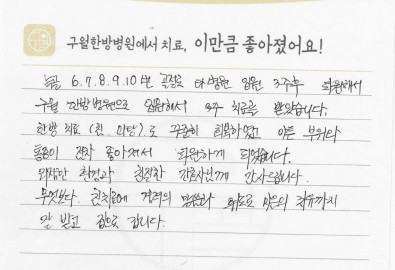 구월한방병원에서 치료, 이만큼 좋아졌어요!
늑골 6.7.8.9.10번 골절로 타병원 입원 3주후 퇴원해서
구월 한방병원으로 입원해서 2주 치료를 받았습니다.
한방 치료(침, )로 꾸준히 회복하였고 아픈 부위와
통증이 점차 좋아져서 퇴원하게 되었습니다.
환경과 친절한 간호사님께 감사드립니다.
무엇보다 침치료에 격려의 말씀과 위로로 마음의 치유까지
잘 받고 집으로 갑니다.